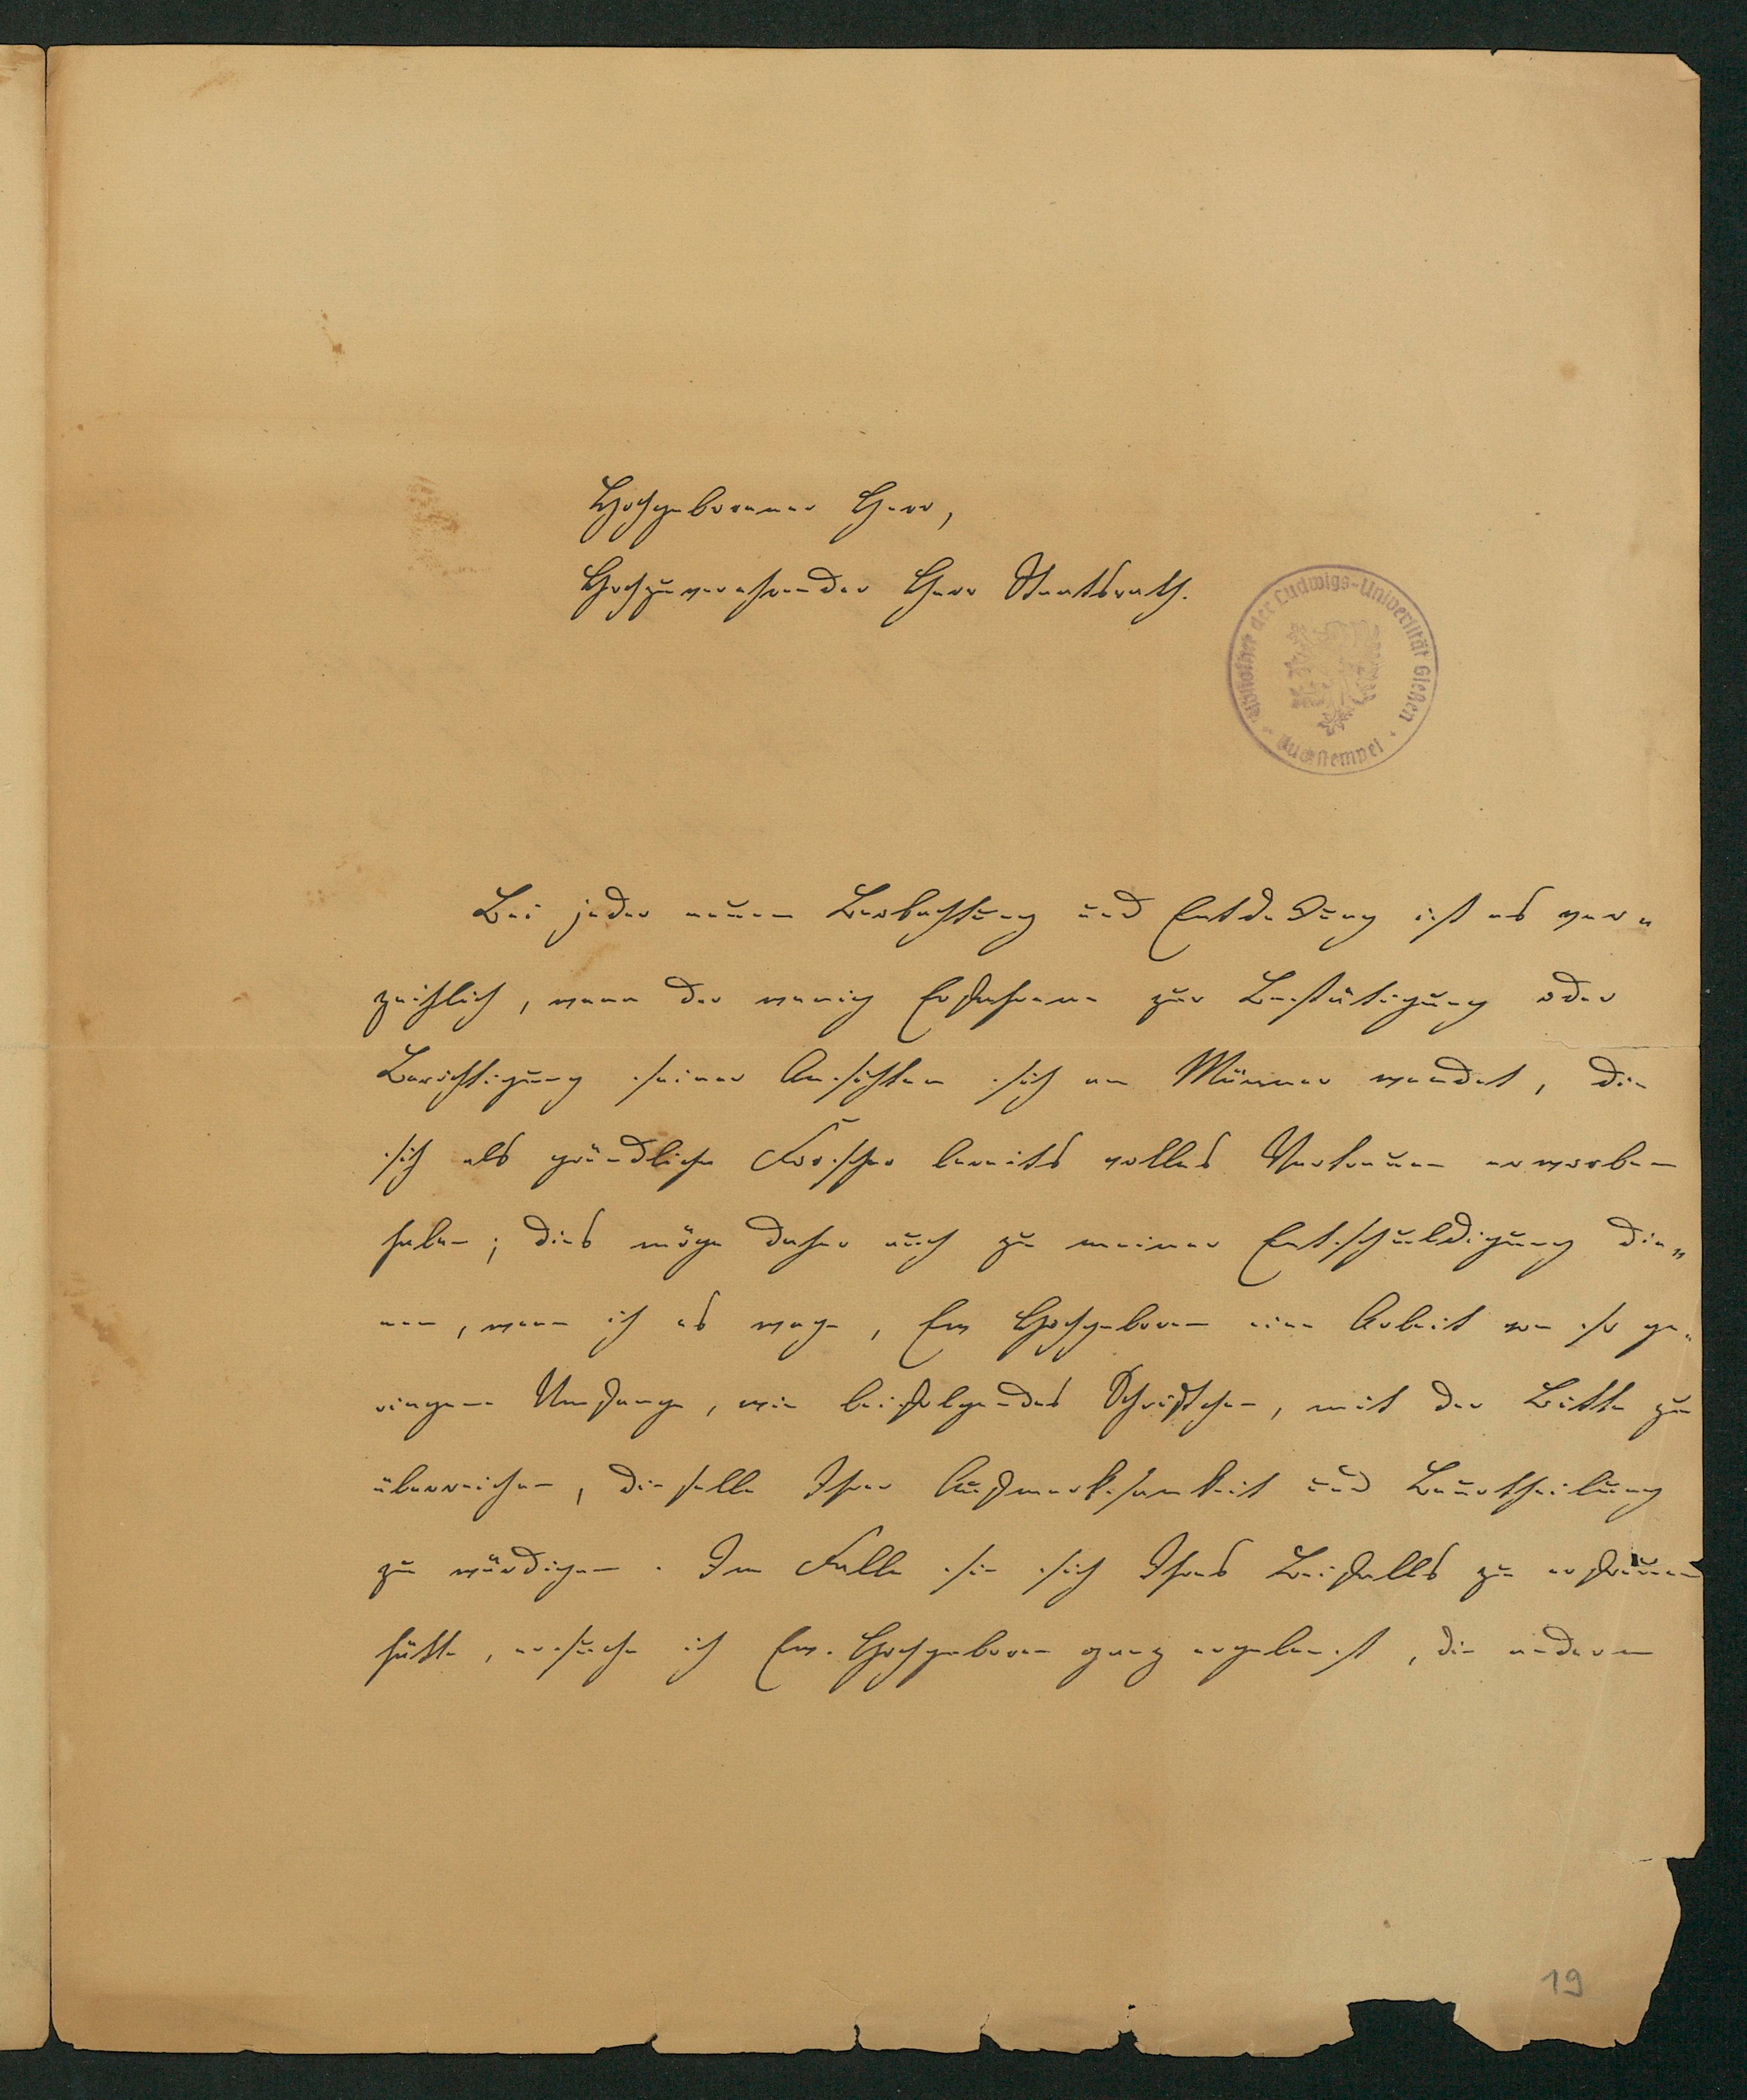 Hochgeborener Herr,
Hochzuverehrender Herr Staatsrath.
Bibliothek der Ludwigs-Universität Gießen
Buchstempel
Bei jeder neuen Beobachtung und Entdeckung ist es ver-
zeihlich, wenn der wenig Erfahrene zur Bestätigung oder
Berichtigung seiner Ansichten sich an Männer wendet, die
sich als gründliche Forscher bereits volles Vertrauen erworben
haben; dies möge daher auch zu meiner Entschuldigung die-
nen, wenn ich es wage, Ew Hochgeboren eine Arbeit von so ge-
ringem Umfange, wie beifolgendes Schriftchen, mit der Bitte zu
überreichen, dieselbe Ihrer Aufmerksamkeit und Beurtheilung
zu würdigen. Im Falle sie sich Ihres Beifalls zu erfreuen
hätte, ersuche ich Ew. Hochgeboren ganz ergebenst, die anderen
19